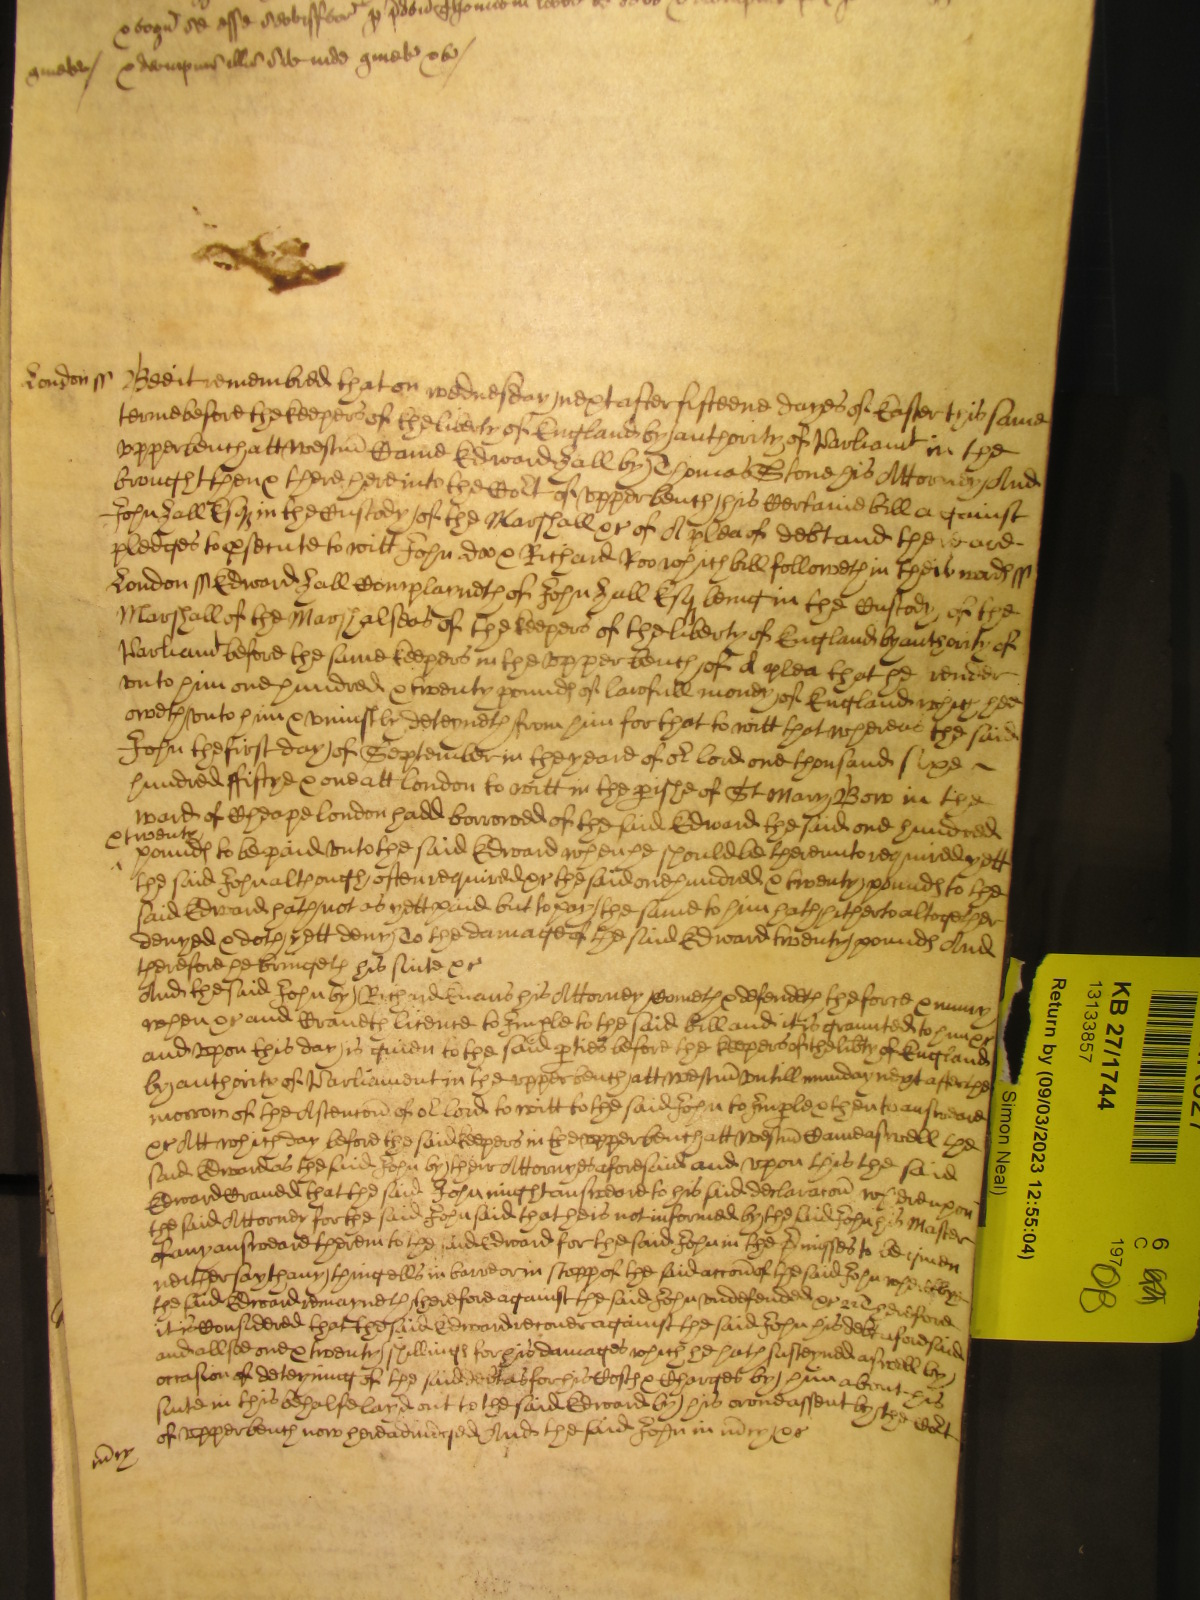 London ss Bee it remembred that on wednesday next after fifteene dayes of Easter this same
terme before the keepers of the liberty of England by authority of Parliamt in the
vpper bench att Westm̄ Came Edward Hall by Thomas Stone his Attorney And
brought then & there here into the Cort of vpper bench his Certaine bill against
John Hall Esqr in the Custody of the Marshall &c of A plea of debt and there are
pledges to psecute to witt John doo & Richard Roo which bill followeth in theis words ss
London ss Edward Hall Complayneth of John Hall Esq being in the Custody of the
Marshall of the Marshalseas of the keepers of the liberty of England by authority of
Parliamt before the same keepers in the vpper bench of A plea that he render
vnto him one hundred & twenty pounds of lawfull money of England which hee
oweth vnto him & vniustly deteyneth from him for that to witt that whereas the said
John the first day of September in the yeare of or lord one thousand sixe
hundred fiftye & one att London to witt in the pishe of St Mary Bow in the
ward of Cheape London hadd borrowed of the said Edward the said one hundred
& twenty
pounds to be paid vnto the said Edward when he should be therevnto required yett
the said John although often required &c the said one hundred & twenty pounds to the
said Edward hath not as yett paid but to pay the same to him hath hitherto altogether
denyed & doth yett deny To the damage of the said Edward twenty pounds And
therefore he bringeth his suite &c
And the said John by Richard Evans his Attorney Cometh & defendeth the force & iniury
when &c and Craueth licence to Imple to the said bill and it is graunted to him &c
and vpon this day is giuen to the said pties before the keepers of the libty of England
by authority of Parliament in the vpper bench att Westm̄ vntill munday next after the
morrow of the Ascencōn of or lord to witt to the said John to Imple & then to answeare
&c Att which day before the said keepers in the vpper bench att Westm̄ Came aswell the
said Edward as the said John by their Attorneyes aforesaid and vpon this the said
Edward Craued that the said John might answeare to his said declaracōn wherevpon
the said Attorney for the said John said that he is not informed by the said John his Master
of any answeare therein to the said Edward for the said John in the pmisses to be giuen
neither say they any thing ells in barre or in stopp of the said accōn of the said John whereby
the said Edward remayneth thereof against the said John vndefended &c Therefore
it is Considered that the said Edward recouer against the said John his debt aforesaid
and allsoe one & twenty shillings for his damages which he hath susteyned aswell by
occasion of deteyning of the said debt as for his Costs & Charges by him about his
suite in this behalfe layd out to the said Edward by his owne assent by the Cort
of vpper bench now here adiudged And the said John in m̄cy &c
m̄cy
KB 27/1744
13133857
Return by (09/03/2023 12:55:04)
Simon Neal)
6
C
197